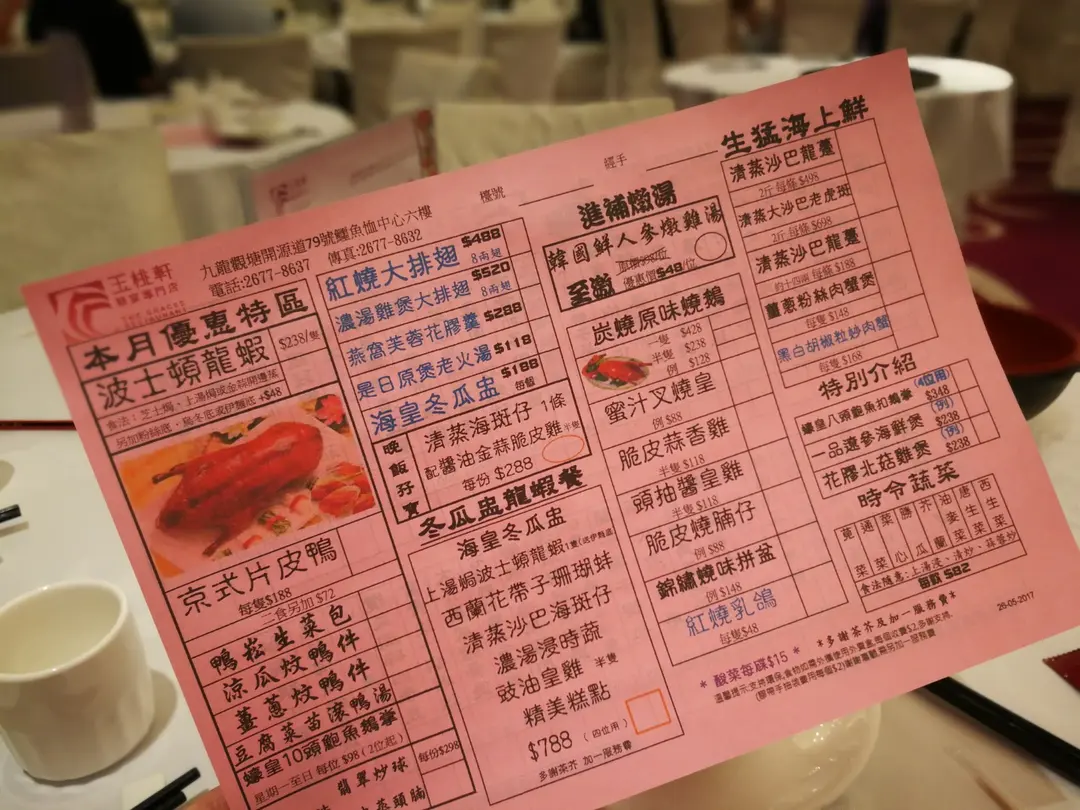 王桃軒
九龍觀塘開源道79號鱷魚恤中心六樓
電話:2677-8637 傳真:2677-8632
檯號
經手
本月優惠特區
波士頓龍蝦 $238/隻
另加粉絲底、烏冬底或伊麵底+$48
京式片皮鴨
每隻$188
二食另加 $72
鴨崧生菜包
涼瓜炆鴨件
薑蔥炆鴨件
豆腐菜苗滾鴨湯
蠔皇10頭鮑魚鵝掌
星期一至日 每位 $98 (2位起)
翡翠炒球
每份$298
紅燒大排翅 $488 8両翅
濃湯雞煲大排翅 $520 8両翅
燕窩芙蓉花膠羹 $288
是日原煲老火湯 $118
海皇冬瓜盅 $188 每個
晚飯孖寶
清蒸海斑仔 1條
配醬油金蒜脆皮雞 半隻
每份 $288
冬瓜盅龍蝦餐
海皇冬瓜盅
上湯焗波士頓龍蝦1隻(送伊麵底)
西蘭花帶子珊瑚蚌
清蒸沙巴海斑仔
濃湯浸時蔬
豉油皇雞 半隻
精美糕點
$788 (四位用)
多謝茶芥 加一服務費
進補燉湯
韓國鮮人參燉雞湯
至激 優惠價$48/位
炭燒原味燒鵝
一隻 $428
半隻 $238
例 $128
蜜汁叉燒皇
例 $88
脆皮蒜香雞
半隻 $118
頭抽醬皇雞
半隻 $118
脆皮燒腩仔
例 $88
錦繡燒味拼盆
例 $148
紅燒乳鴿
每隻$48
*酸菜每碟$15*
生猛海上鮮
清蒸沙巴龍躉
2斤 每條 $498
清蒸大沙巴老虎斑
2斤 每條 $698
清蒸沙巴龍躉
約十四両 每條 $188
薑蔥粉絲肉蟹煲
每隻 $148
黑白胡椒粒炒肉蟹
每隻 $168
特別介紹
蠔皇八頭鮑魚扣鵝掌 (4位用) $348
一品遼參海鮮煲 (例) $238
花膠北菇雞煲 (例) $238
時令蔬菜
莧菜 通菜 菜心 勝瓜 芥蘭 油麥菜 唐生菜 西生菜
食法隨意:上湯浸、清炒、蒜蓉炒
每款 $82
*多謝茶芥及加一服務費*
28-05-2017